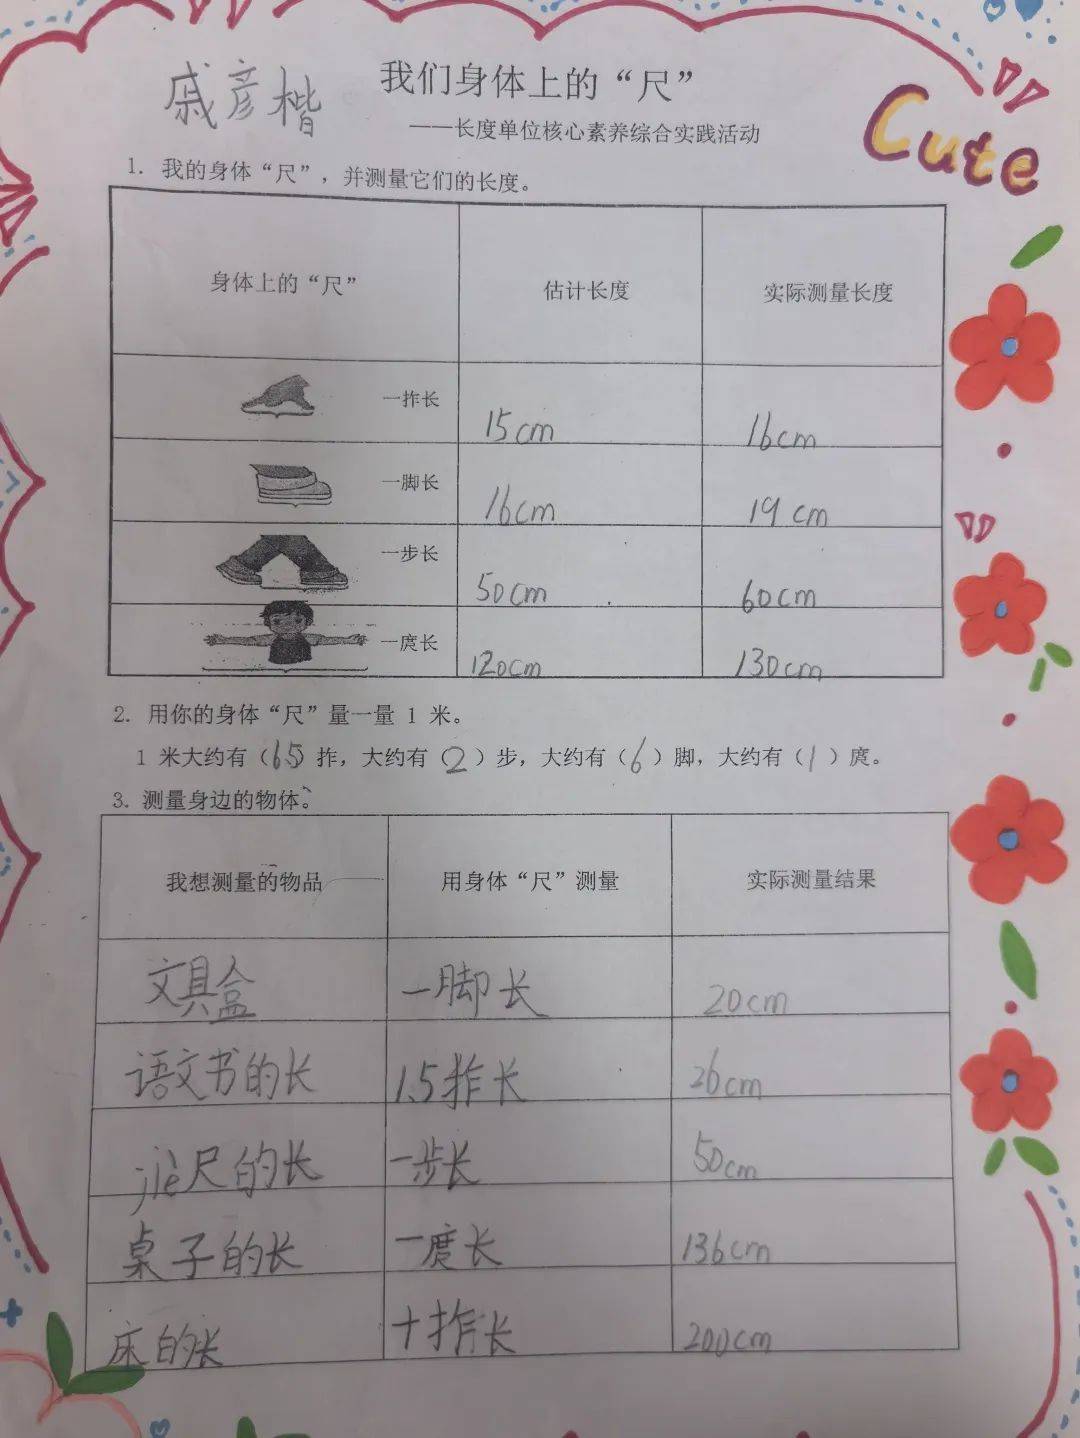 戚彦楷
我们身体上的“尺”
——长度单位核心素养综合实践活动
Cute
1. 我的身体“尺”，并测量它们的长度。
身体上的“尺” 估计长度 实际测量长度
一拃长 15cm 16cm
一脚长 16cm 19cm
一步长 50cm 60cm
一庹长 120cm 130cm
2. 用你的身体“尺”量一量 1 米。
1 米大约有（6.5）拃，大约有（2）步，大约有（6）脚，大约有（1）庹。
3. 测量身边的物体。
我想测量的物品 用身体“尺”测量 实际测量结果
文具盒 一脚长 20cm
语文书的长 1.5拃长 26cm
jiè尺的长 一步长 50cm
桌子的长 一度长 136cm
床的长 十拃长 200cm